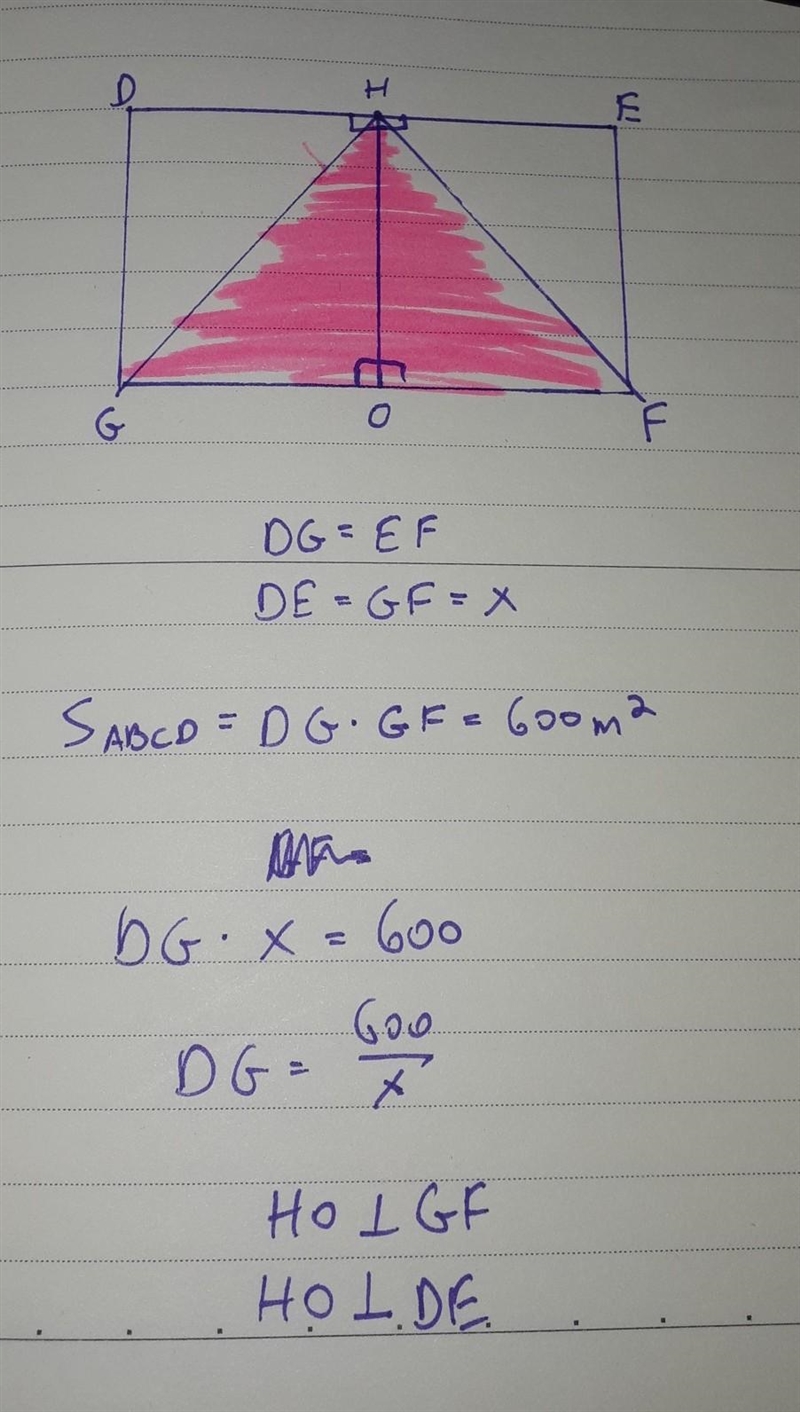 D H E
G O F
DG = EF
DE = GF = x
S_ABCD = DG · GF = 600 m²
DG · x = 600
DG = 600/x
HO ⊥ GF
HO ⊥ DE